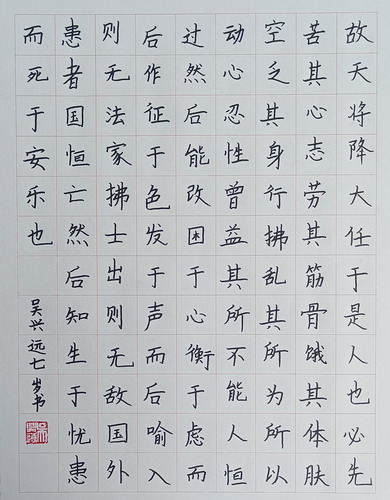 故天将降大任于是人也必先
苦其心志劳其筋骨饿其体肤
空乏其身行拂乱其所为所以
动心忍性曾益其所不能人恒
过然后能改困于心衡于虑而
后作征于色发于声而后喻入
则无法家拂士出则无敌国外
患者国恒亡然后知生于忧患
而死于安乐也
吴兴远七岁书